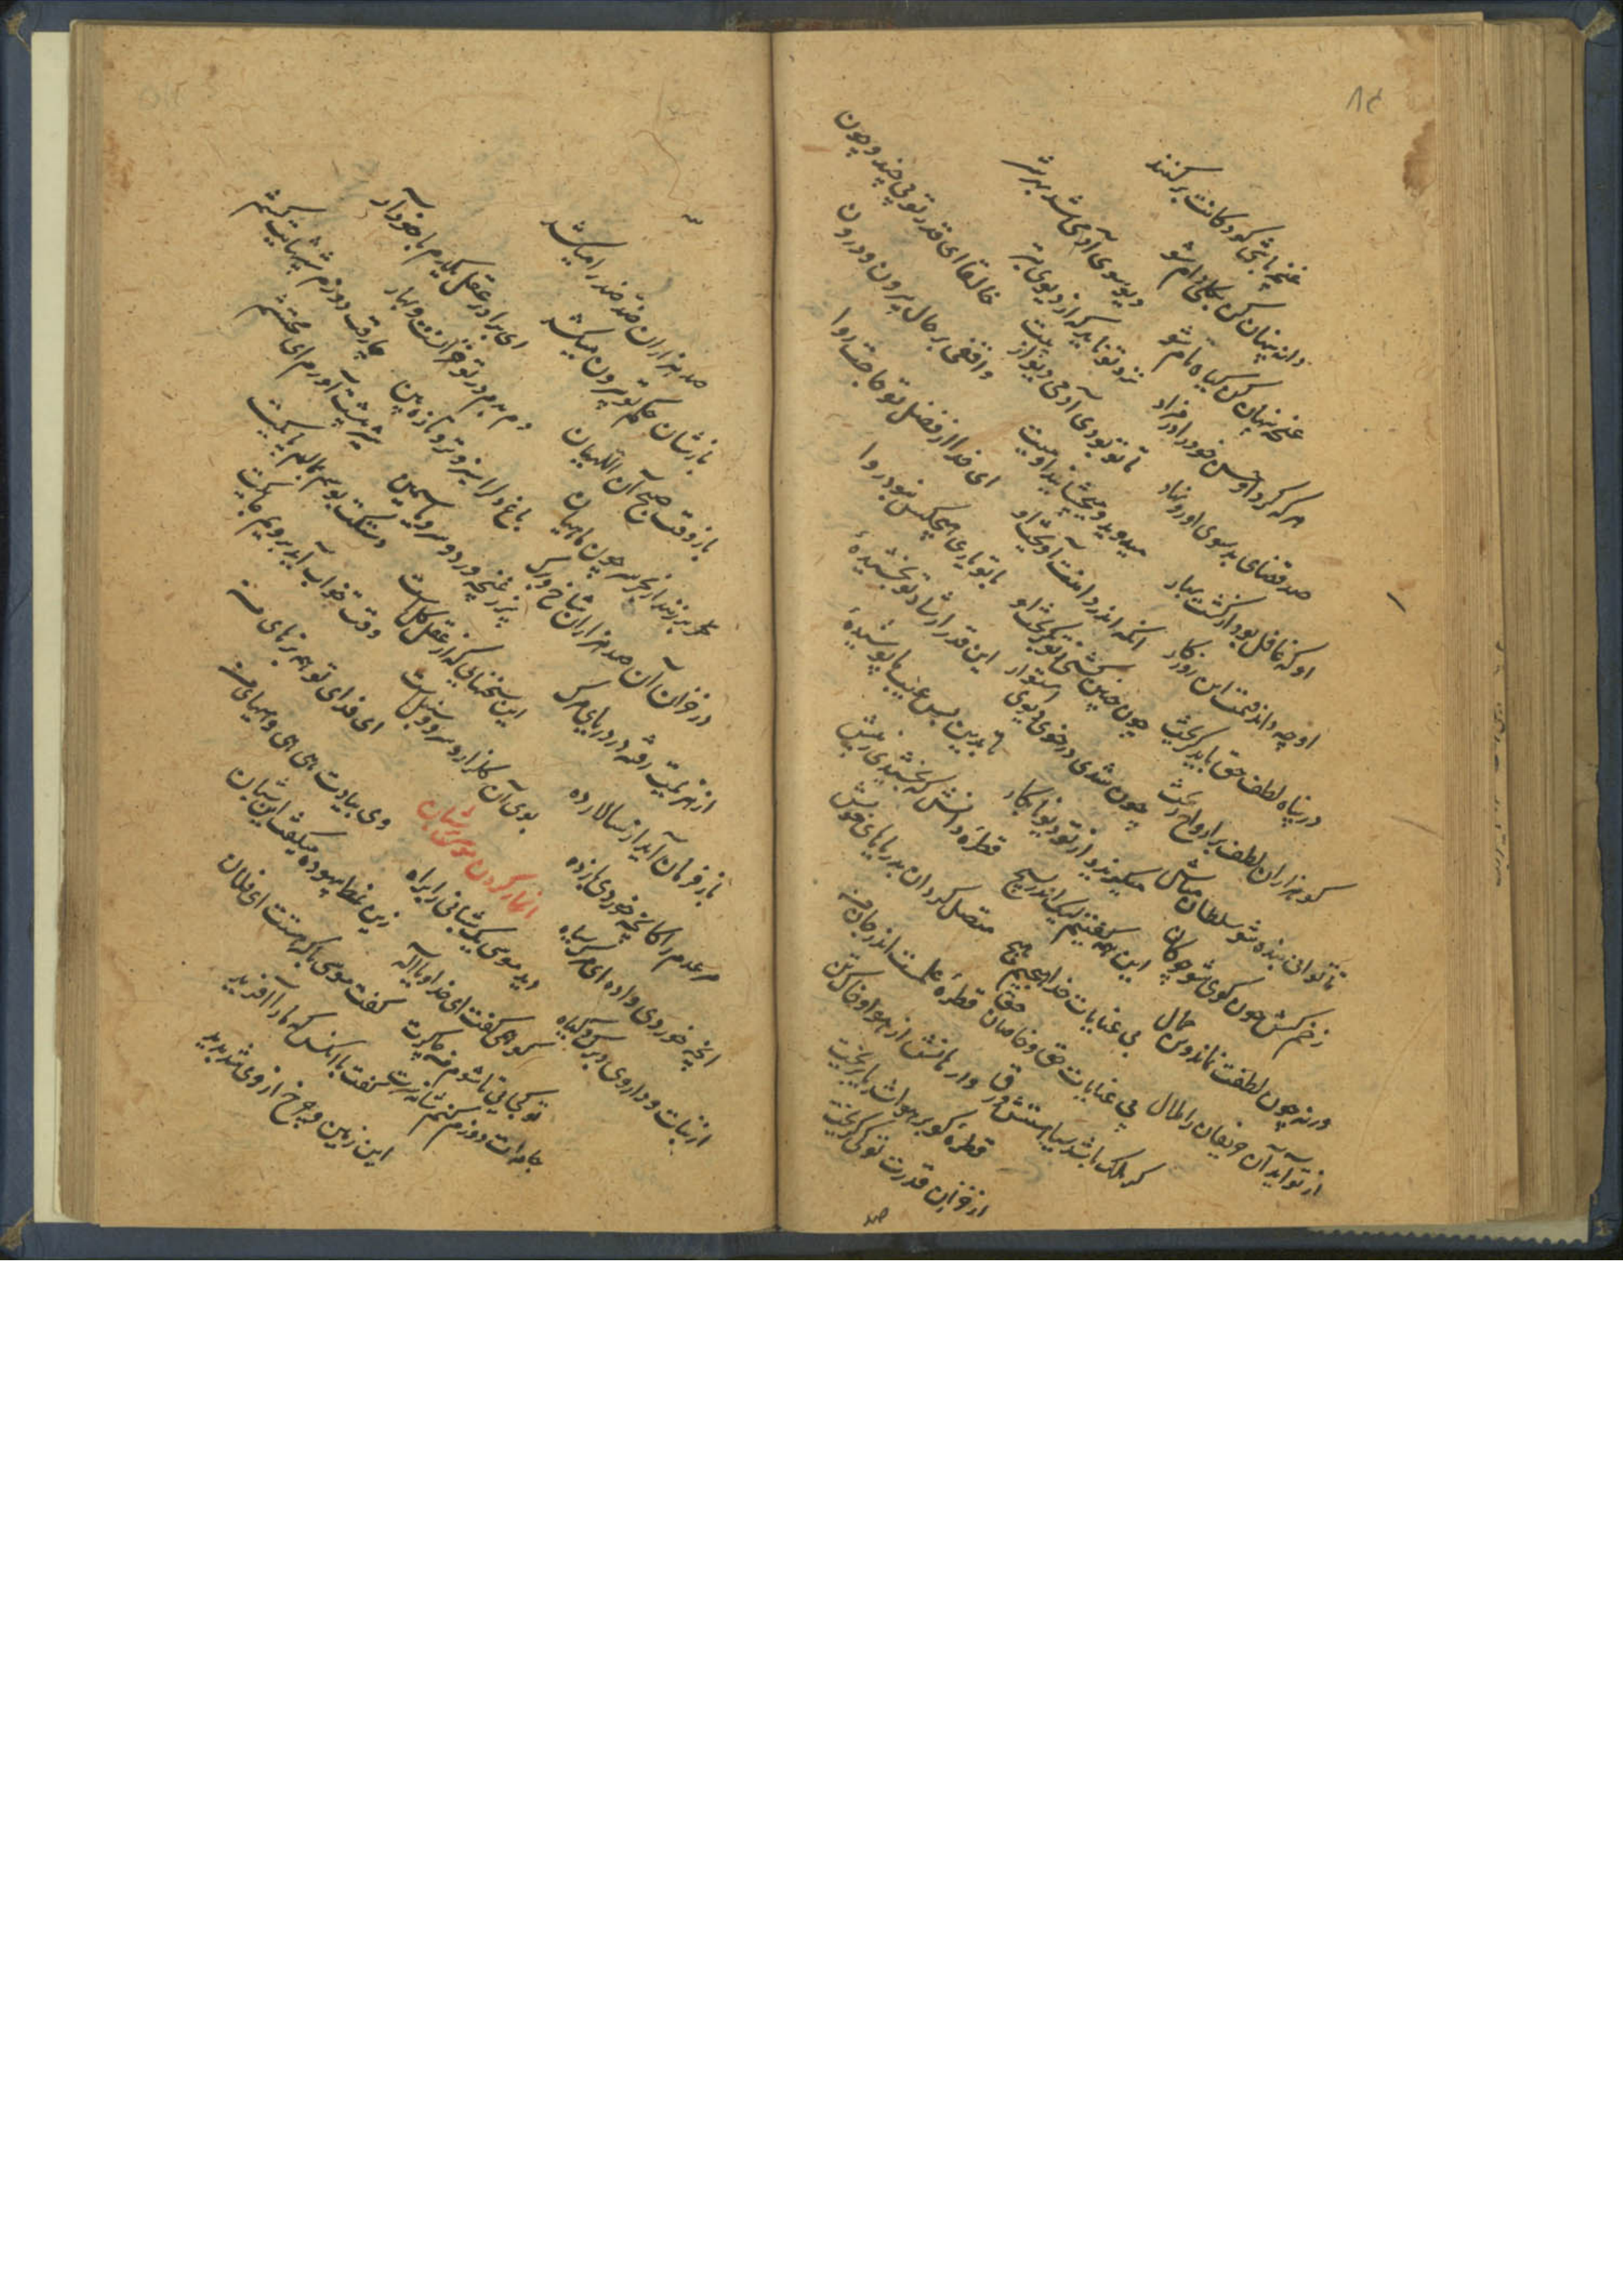 ۸۴
غنچه باشی کودکانت برکنند
دانه پنهان کن بکلی دام شو
غنچه پنهان کن گیاه بام شو
هر که کرد او حسن خود را در مزاد
صد قضای بد سوی او رو نهاد
او که غافل بود از کشت بهار
او چه داند قیمت این روزگار
در پناه لطف حق باید گریخت
کو هزاران لطف بر ارواح ریخت
تا توانی بنده شو سلطان مباش
زخم کش چون گوی شو چوگان مباش
ورنه چون لطفت نماند وین جمال
از تو آید آن حریفان را ملال
دیو سوی آدمی شد بهر شر
نزد تو ناید که از دیوی بتر
تا تو بودی آدمی دیو از پیت
میدوید و میچشانید او میت
آنکه اندر دامنت آویخت او
چون چنین گشتی ز تو بگریخت او
چون شدی در خوی دیوی استوار
میگریزد از تو دیو نابکار
این همه گفتیم لیک اندر بسیج
بی عنایات خدا هیچیم هیچ
بی عنایات حق و خاصان حق
گر ملک باشد سیاهستش ورق
خالقا ای قدر تو بی چند و چون
واقفی بر حال بیرون و درون
ای خدا از فضل تو حاجت روا
با تو یاری هیچکس نبود روا
این قدر ارشاد تو بخشیدهٔ
تا بدین بس عیب ما پوشیدهٔ
قطرهٔ دانش که بخشیدی ز پیش
متصل گردان بدریاهای خویش
قطرهٔ علمست اندر جان من
وارهانش از هوا وز خاک تن
قطرهٔ کو بر هوا شد یا بریخت
از خزان قدرت تو کی گریخت
صد
صد هزاران ضد ضد را میکشد
بازشان حکم تو بیرون میکشد
باز وقت صبح آن اللهیان
برزنند از بحر سر چون ماهیان
در خزان آن صد هزاران شاخ و برگ
از هزیمت رفته در دریای مرگ
باز فرمان آید از سالار ده
مر عدم را کانچه خوردی باز ده
آنچه خوردی وا ده ای مرگ سیاه
از نبات و داروی و برگ و گیاه
ای برادر عقل یکدم با خود آر
دم بدم در تو خزانست و بهار
باغ دل را سبز و تر و تازه بین
پر ز غنچه ورد و سرو و یاسمین
این سخنهایی که از عقل کلست
بوی آن گلزار و سرو و سنبلست
انکار کردن موسی بر شبان
دید موسی یک شبانی را براه
کو همی گفت ای خدا و یا اله
تو کجایی تا شوم من چاکرت
جامه‌ات دوزم کنم شانه سرت
چارقت دوزم شپشهایت کشم
شیر پیشت آورم ای محتشم
دستکت بوسم بمالم پایکت
وقت خواب آید بروبم جایکت
ای فدای تو همه بزهای من
وی بیادت هی هی و هیهای من
زین نمط بیهوده میگفت این شبان
گفت موسی با که هستت ای فلان
گفت با آنکس که ما را آفرید
این زمین و چرخ از وی شد پدید